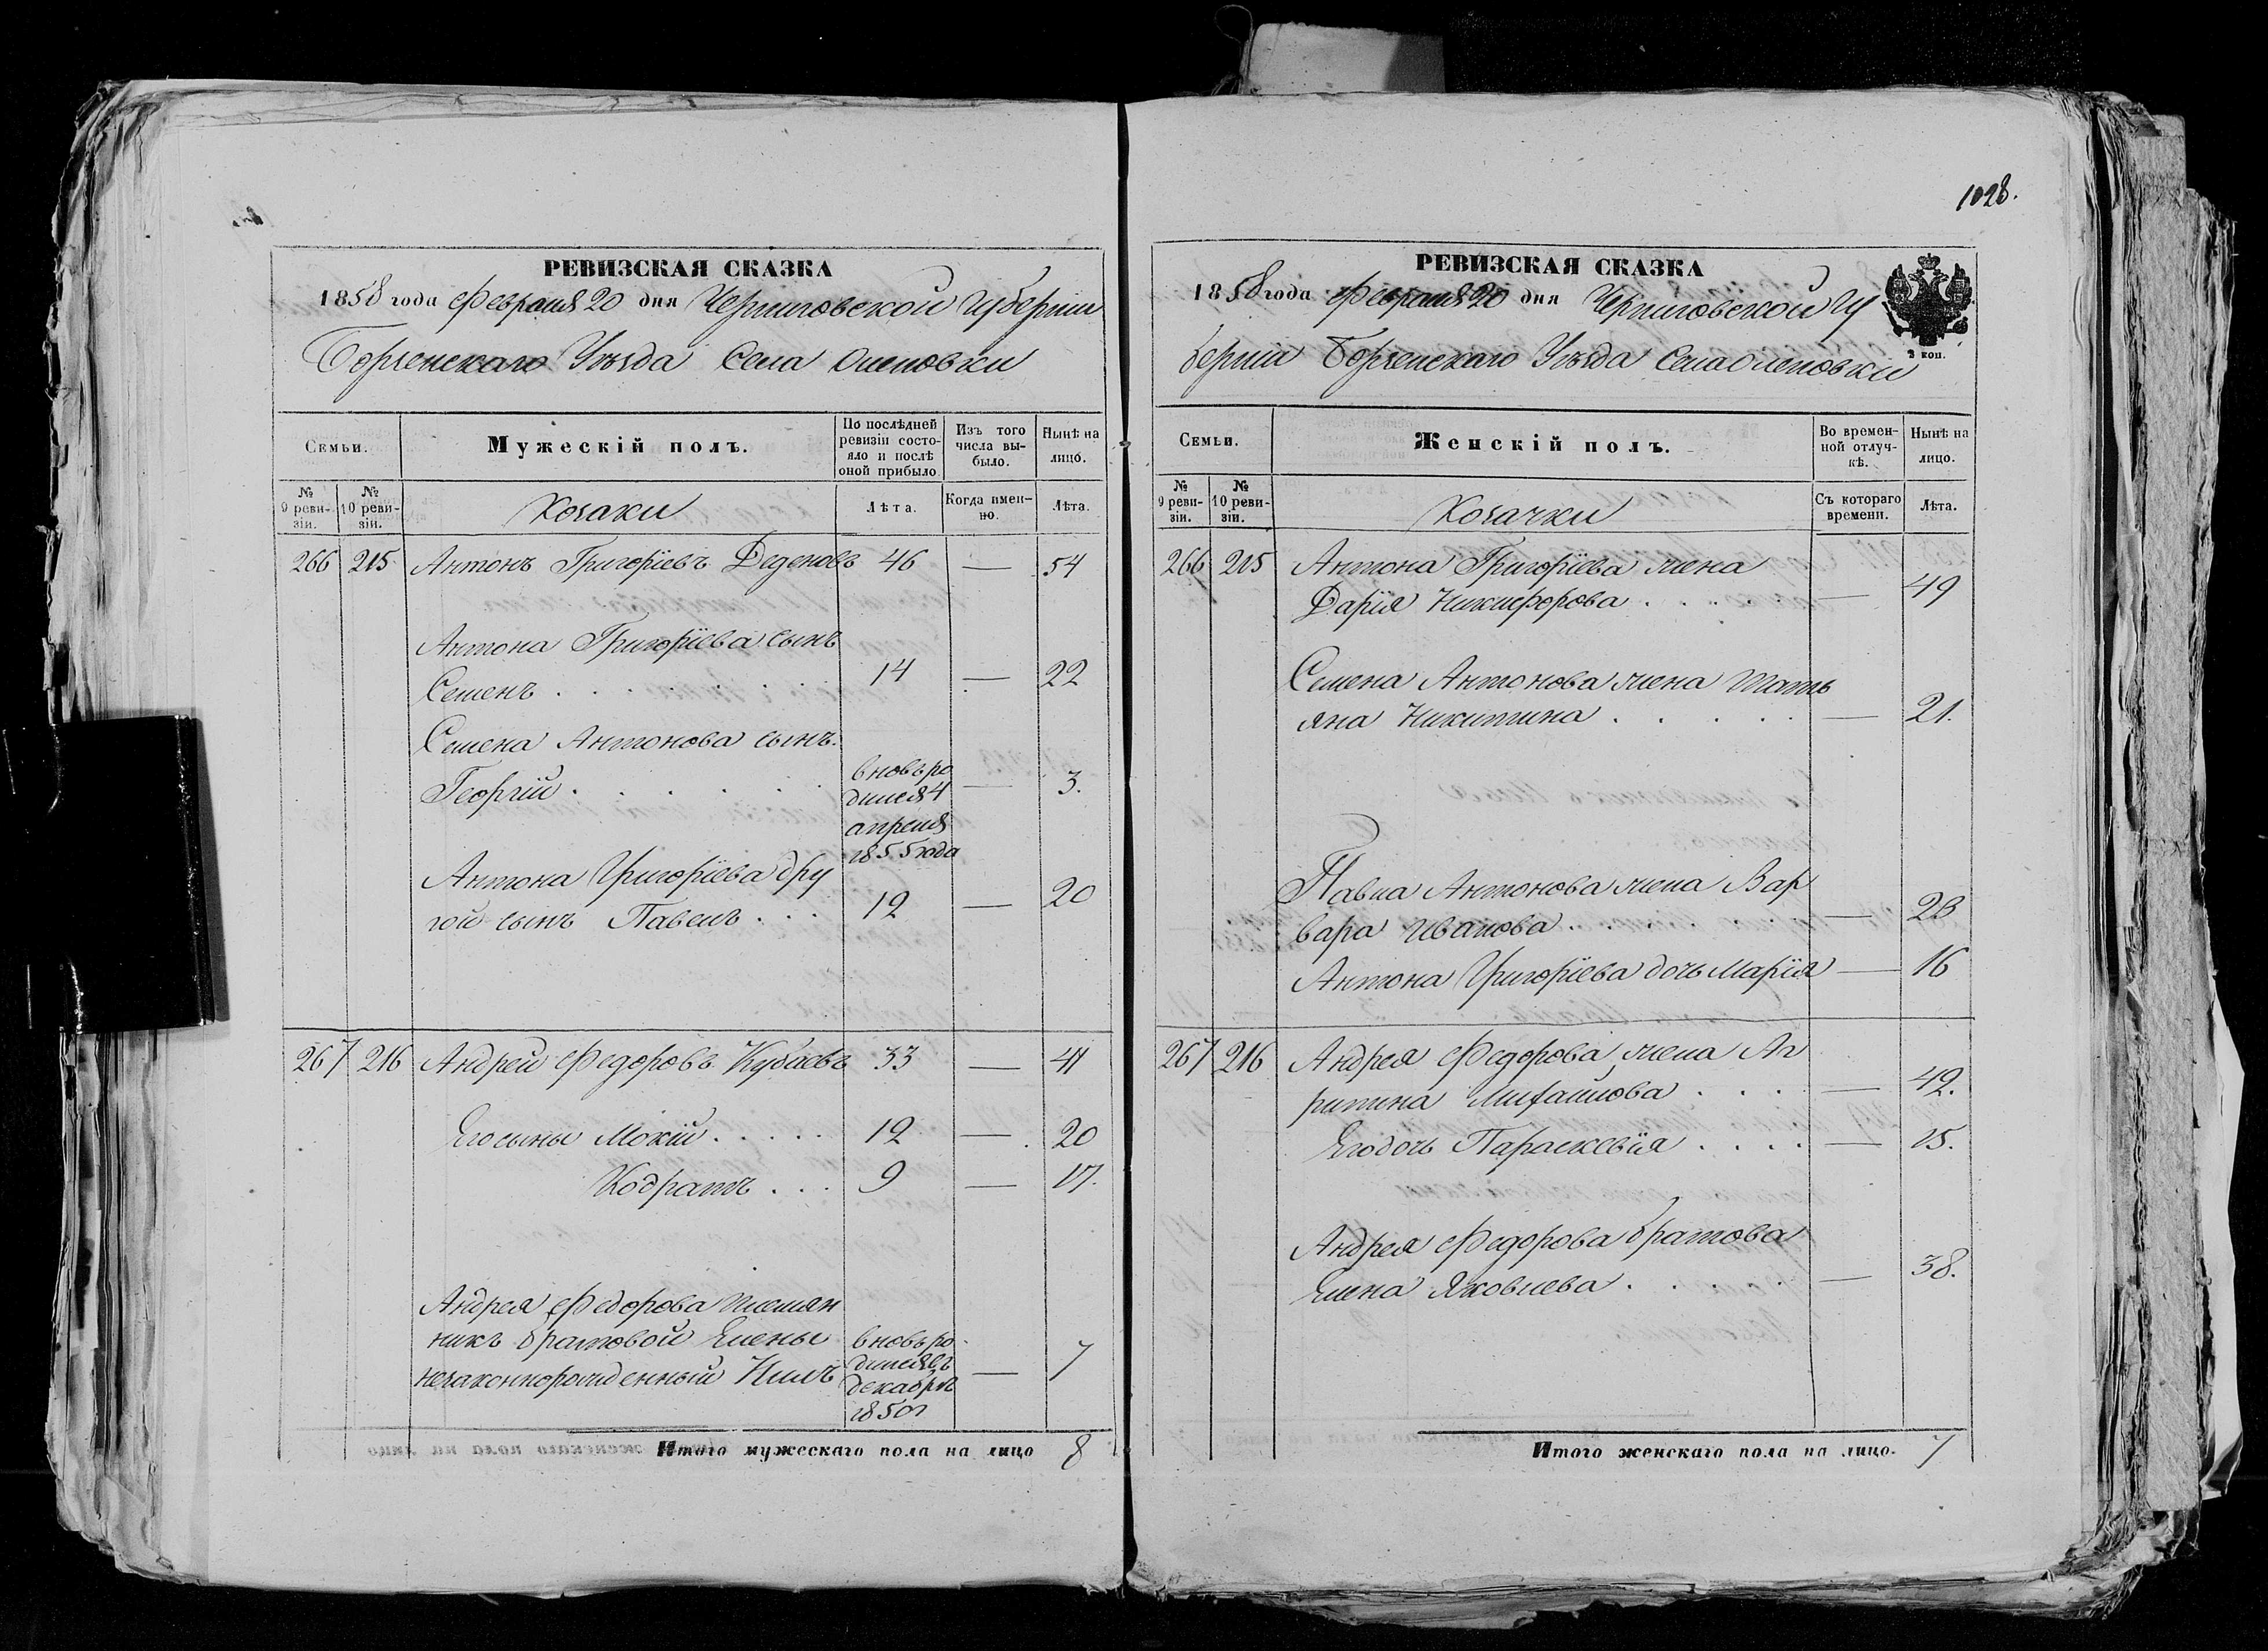 1028.
РЕВИЗСКАЯ СКАЗКА
1858 года Февраля 20 дня Черниговской Губернии
Борзенскаго Уѣзда Села Оленовки
Семьи.
Мужескій полъ.
По послѣдней ревизіи состояло и послѣ оной прибыло
Изъ того числа выбыло.
Нынѣ на лицо.
№ 9 ревизіи.
№ 10 ревизіи.
Козаки
Лѣта.
Когда именно.
Лѣта.
266 215 Антонъ Григоріевъ Деденовъ 46 — 54
Антона Григоріева сынъ
Семенъ . . . . . . . 14 — 22
Семена Антонова сынъ
Георгій . . . . . . вновь ро — 3.
дился 4
апреля
1855 года
Антона Григоріева дру
гой сынъ Павелъ . . . 12 — 20
267 216 Андрей Федоровъ Кубаевъ 33 — 41
Его сыны Мокій . . . . . 12 — 20
Кодратъ . . . 9 — 17.
Андрея Федорова племян
никъ братовой Елены вновь ро
незаконнорожденный Нилъ дился въ — 7
декабрѣ
1850 г
Итого мужескаго пола на лицо 8
РЕВИЗСКАЯ СКАЗКА
1858 года Февраля 20 дня Черниговской Гу
берніи Борзенскаго Уѣзда Села Оленовки
2 коп.
Семьи.
Женскій полъ.
Во временной отлучкѣ.
Нынѣ на лицо.
№ 9 ревизіи.
№ 10 ревизіи.
Козачки
Съ котораго времени.
Лѣта.
266 215 Антона Григоріева жена
Дарія Никифорова . . . . . — 49
Семена Антонова жена Тать
яна Никитина . . . . . — 21.
Павла Антонова жена Вар
вара Иванова . . . . — 28
Антона Григоріева дочь Марія — 16
267 216 Андрея Федорова жена Аг
рипина Михайлова . . . — 42.
Его дочь Параскевія . . . . — 15.
Андрея Федорова братова
Елена Яковлева . . . . — 38.
Итого женскаго пола на лицо. 7